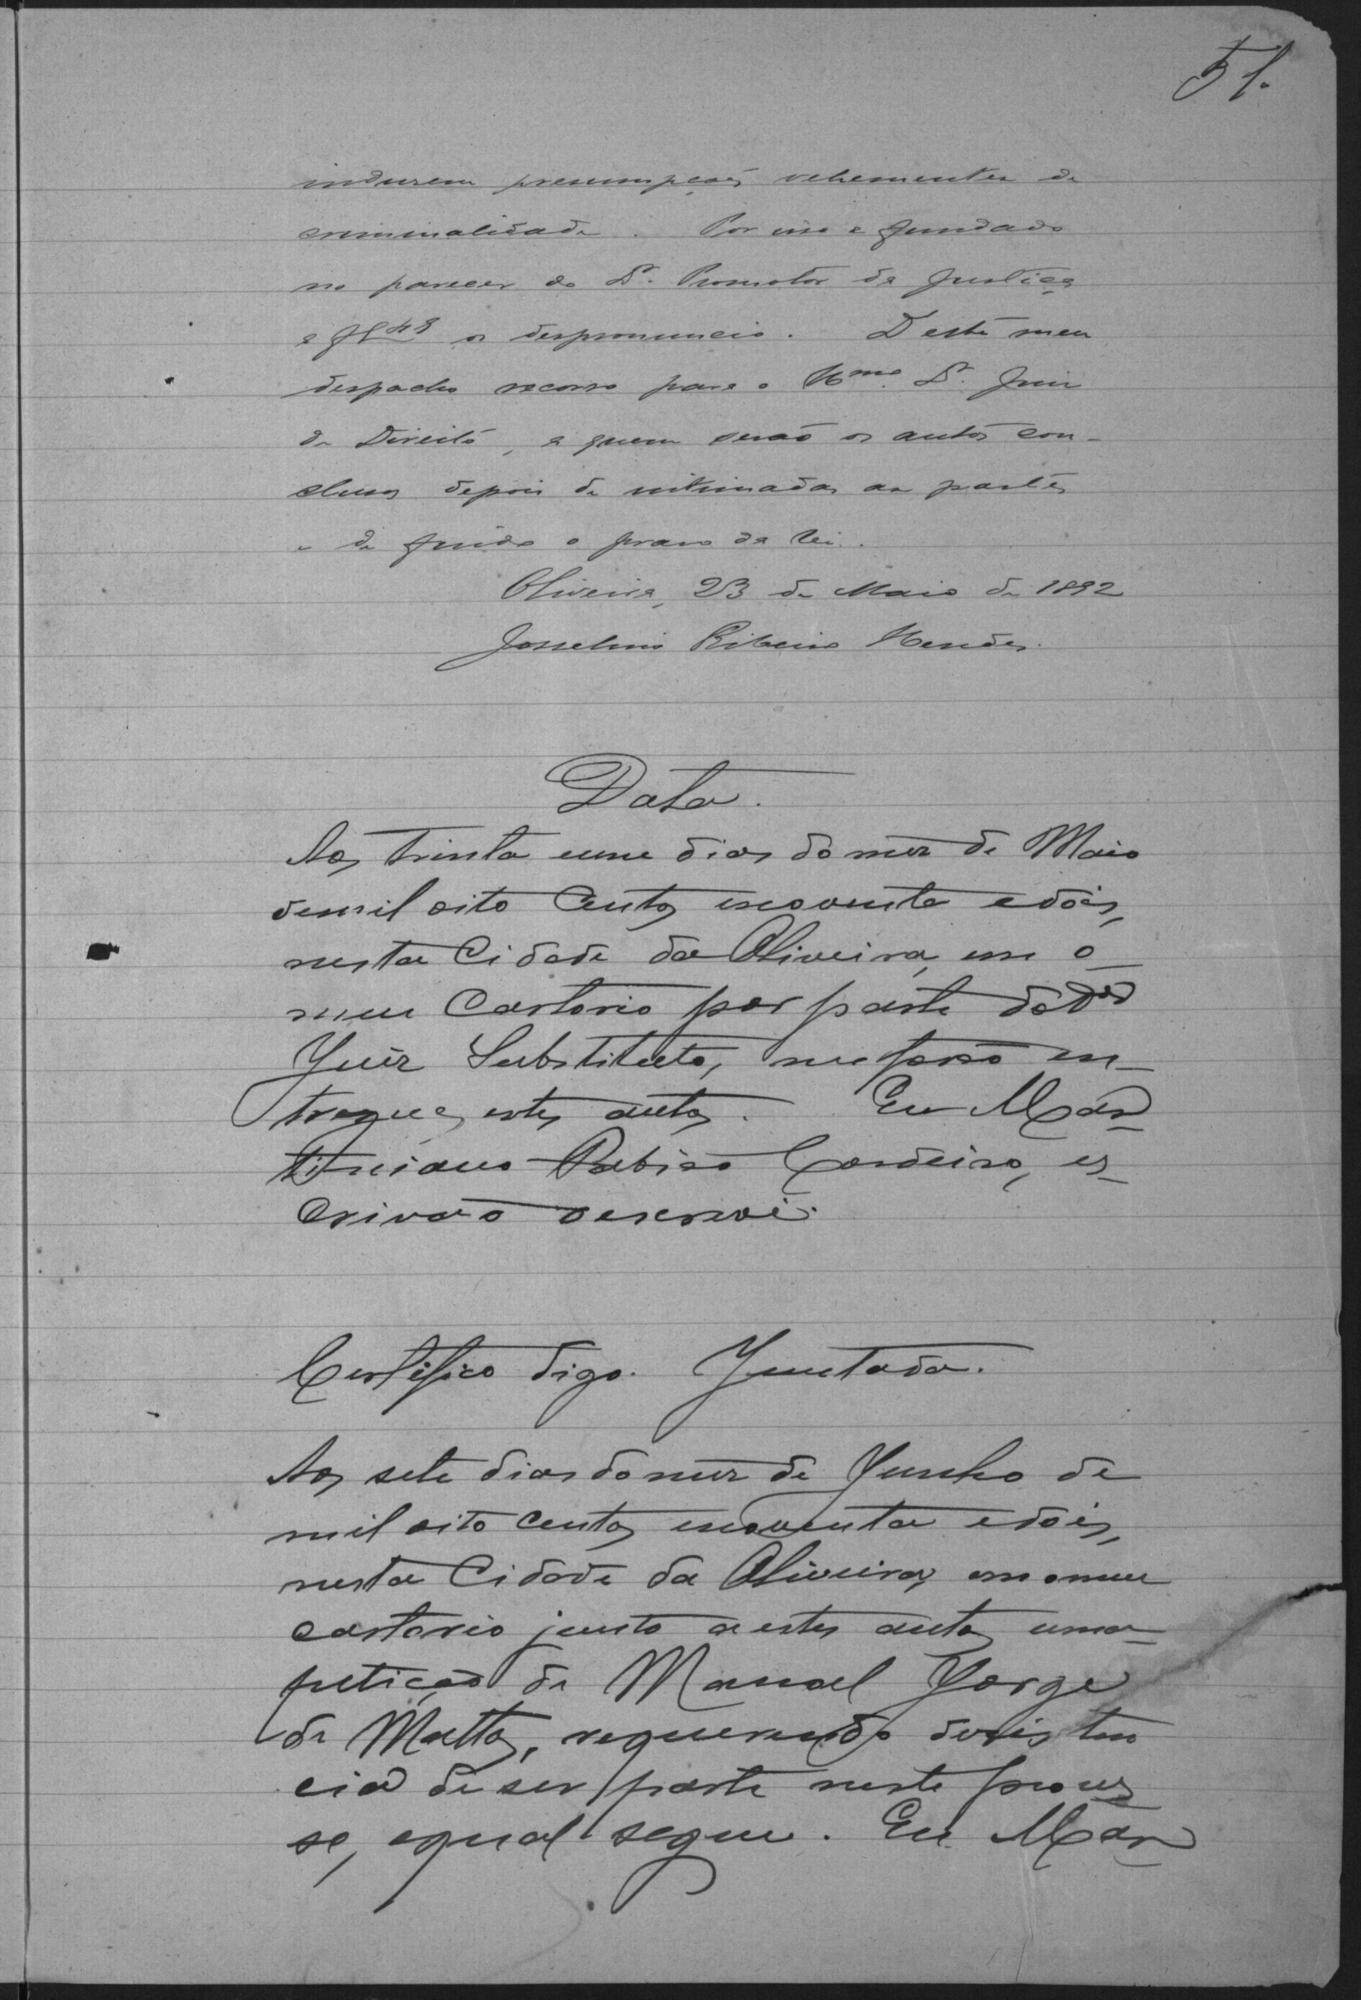 51.
indusem presumpções vehementes de
criminalidade. Por isso e fundado
no parecer do Dr. Promotor da Justiça
a fl 48 os despronuncio. Deste meu
despacho recorro para o Mmo. Dr. Juiz
de Direito, a quem serão os autos con-
clusos depois de intimadas as partes
e de findo o praso da lei.
Oliveira, 23 de Maio de 1892
Josselino Ribeiro Mendes.
Data.
Aos trinta eum dias do mez de Maio
demil oito Centos enoventa edois,
nesta Cidade da Oliveira, em o
meu Cartorio por parte do
Juiz Substituto, me forão en-
tregues estes autos. Eu Mar-
tiniano Rabiso Cordeiro, es-
crivão oescrevi.
Certifico digo. Juntada.
Aos sete dias do mez de Junho de
mil oito centos enoventa edois,
nesta Cidade da Oliveira, em o meu
cartorio junto a estes autos uma
petição de Manoel Jorge
de Mattos, requerendo desisten
cia de ser parte neste proces
so, equal segue. Eu Mar